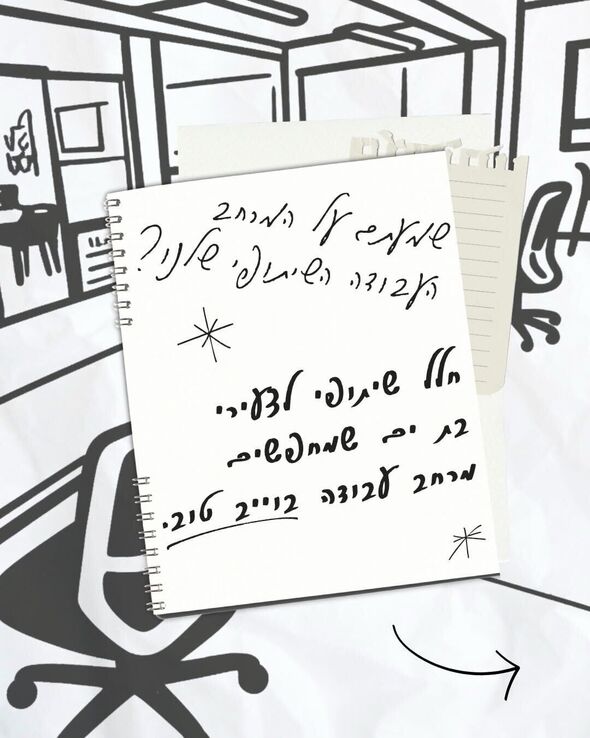 שמעתם על המרחב
העבודה השיתופי שלנו?
חלל שיתופי לצעירי
בת ים שמחפשים
מרחב עבודה בוייב טוב.